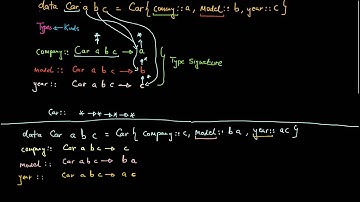 data Car a b c = Car { company :: a, model :: b, year :: c }
Types ← Kinds
* *
company :: Car a b c → a
model :: Car a b c → b
year :: Car a b c → c
Type Signature
Car :: * → * → * → *
data Car a b c = Car { company :: c, model :: b a, year :: a c }
company :: Car a b c → c
model :: Car a b c → b a
year :: Car a b c → a c